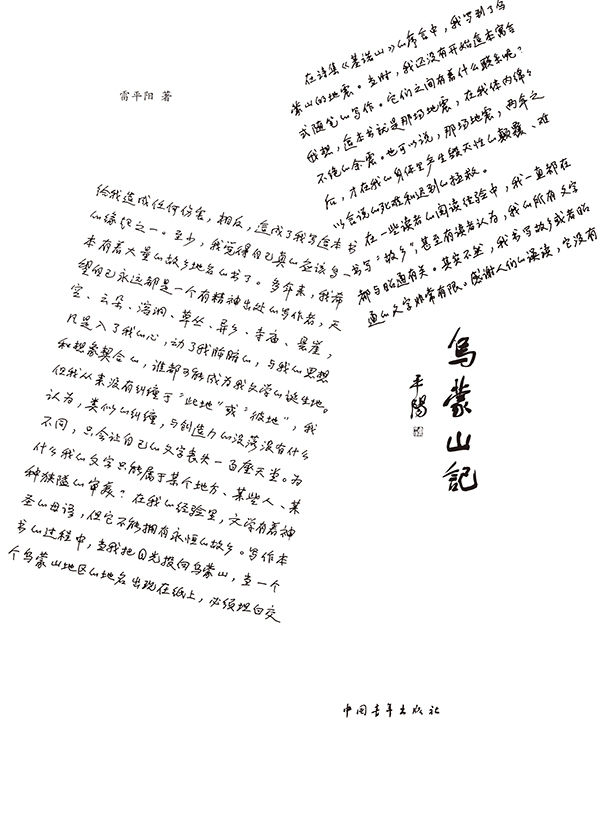 雷平阳 著
在诗集《基诺山》的序言中，我写到了乌
蒙山的地震。当时，我还没有开始这本寓言
式随笔的写作。它们之间有着什么联系呢？
我想，这本书就是那场地震，在我体内绵绵
不绝的余震。也可以说，那场地震，两年之
后，才在我的身体里产生毁灭性的颠覆、难
以言说的死难和迟到的拯救。
在一些读者的阅读经验中，我一直都在
书写“故乡”，甚至有读者认为，我的所有文字
都与昭通有关。其实不然，我书写故乡或者昭
通的文字非常有限。感谢人们的误读，它没有
给我造成任何伤害，相反，造成了我写这本书
的缘起之一。至少，我觉得自己真的应该写一
本有着大量的故乡地名的书了。多年来，我希
望自己永远都是一个有精神出处的写作者，天
空、云朵、溶洞、草丛、异乡、寺庙、悬崖，
凡是入了我的心，动了我肺腑的，与我的思想
和想象契合的，谁都可能成为我文学的诞生地。
但我从来没有纠缠于“此地”或“彼地”，我
认为，类似的纠缠，与创造力的没落没有什么
不同，只会让自己的文字丧失一百座天堂。为
什么我的文字只能属于某个地方、某些人、某
种狭隘的审美？在我的经验里，文学有着神
圣的母语，但它不能拥有永恒的故乡。写作本
书的过程中，当我把目光投向乌蒙山，当一个
个乌蒙山地区的地名出现在纸上，必须坦白交
乌蒙山記
平陽
中国青年出版社